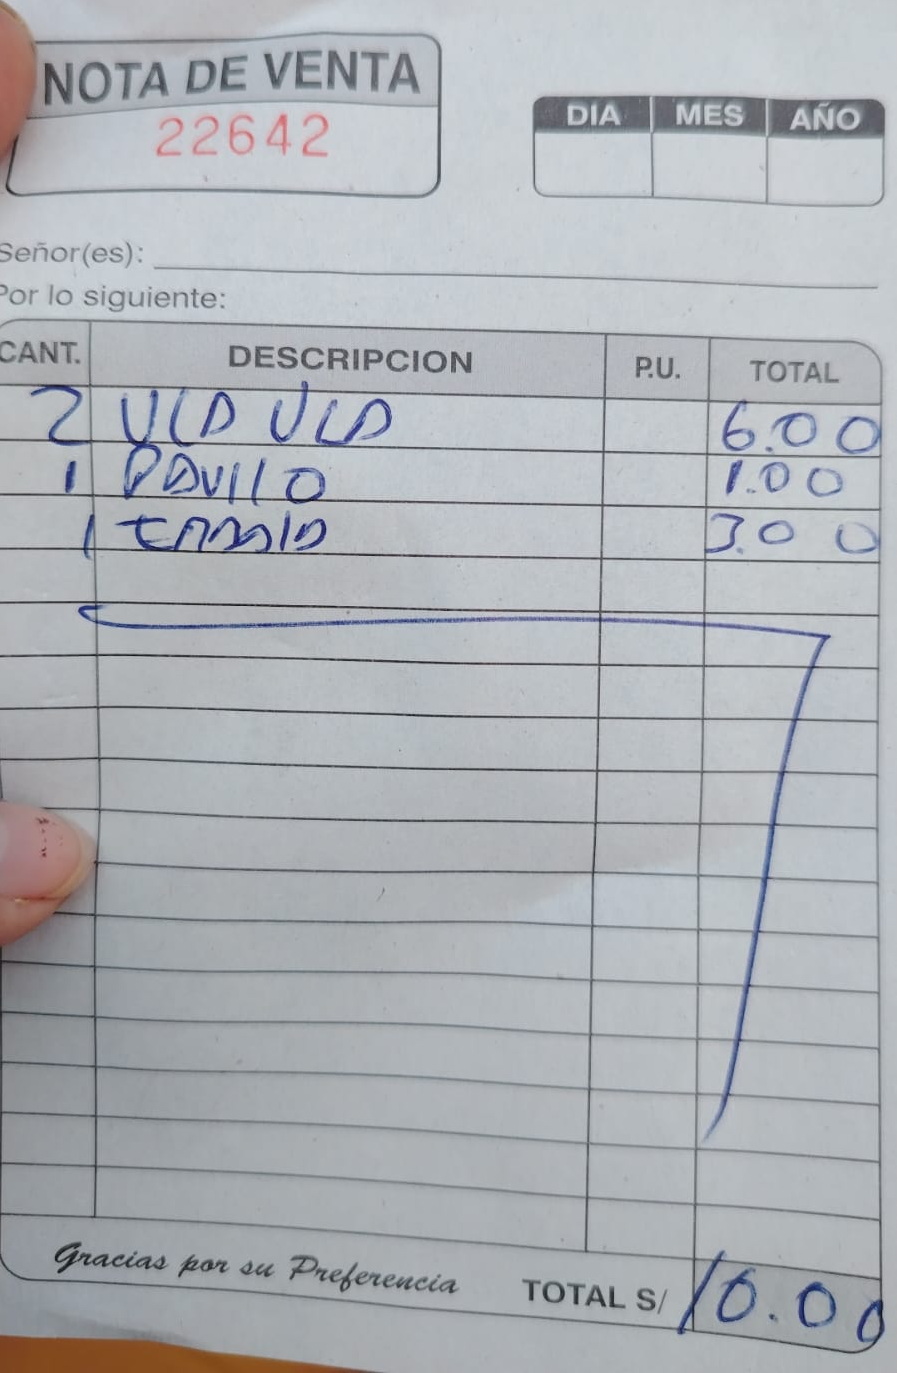 NOTA DE VENTA
22642
DIA MES AÑO
Señor(es):
Por lo siguiente:
CANT. DESCRIPCION P.U. TOTAL
2 6.00
1 PAVILO 1.00
1 3.00
Gracias por su Preferencia TOTAL S/ 10.00